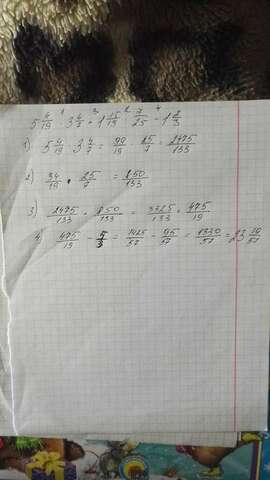 5 4/19 · 3 4/7 + 1 15/19 : 7/25 - 1 2/3
1) 5 4/19 · 3 4/7 = 99/19 · 25/7 = 2475/133
2) 34/19 · 25/7 = 850/133
3) 2475/133 + 850/133 = 3325/133 = 475/19
4) 475/19 - 5/3 = 1425/57 - 95/57 = 1330/57 = 23 19/57